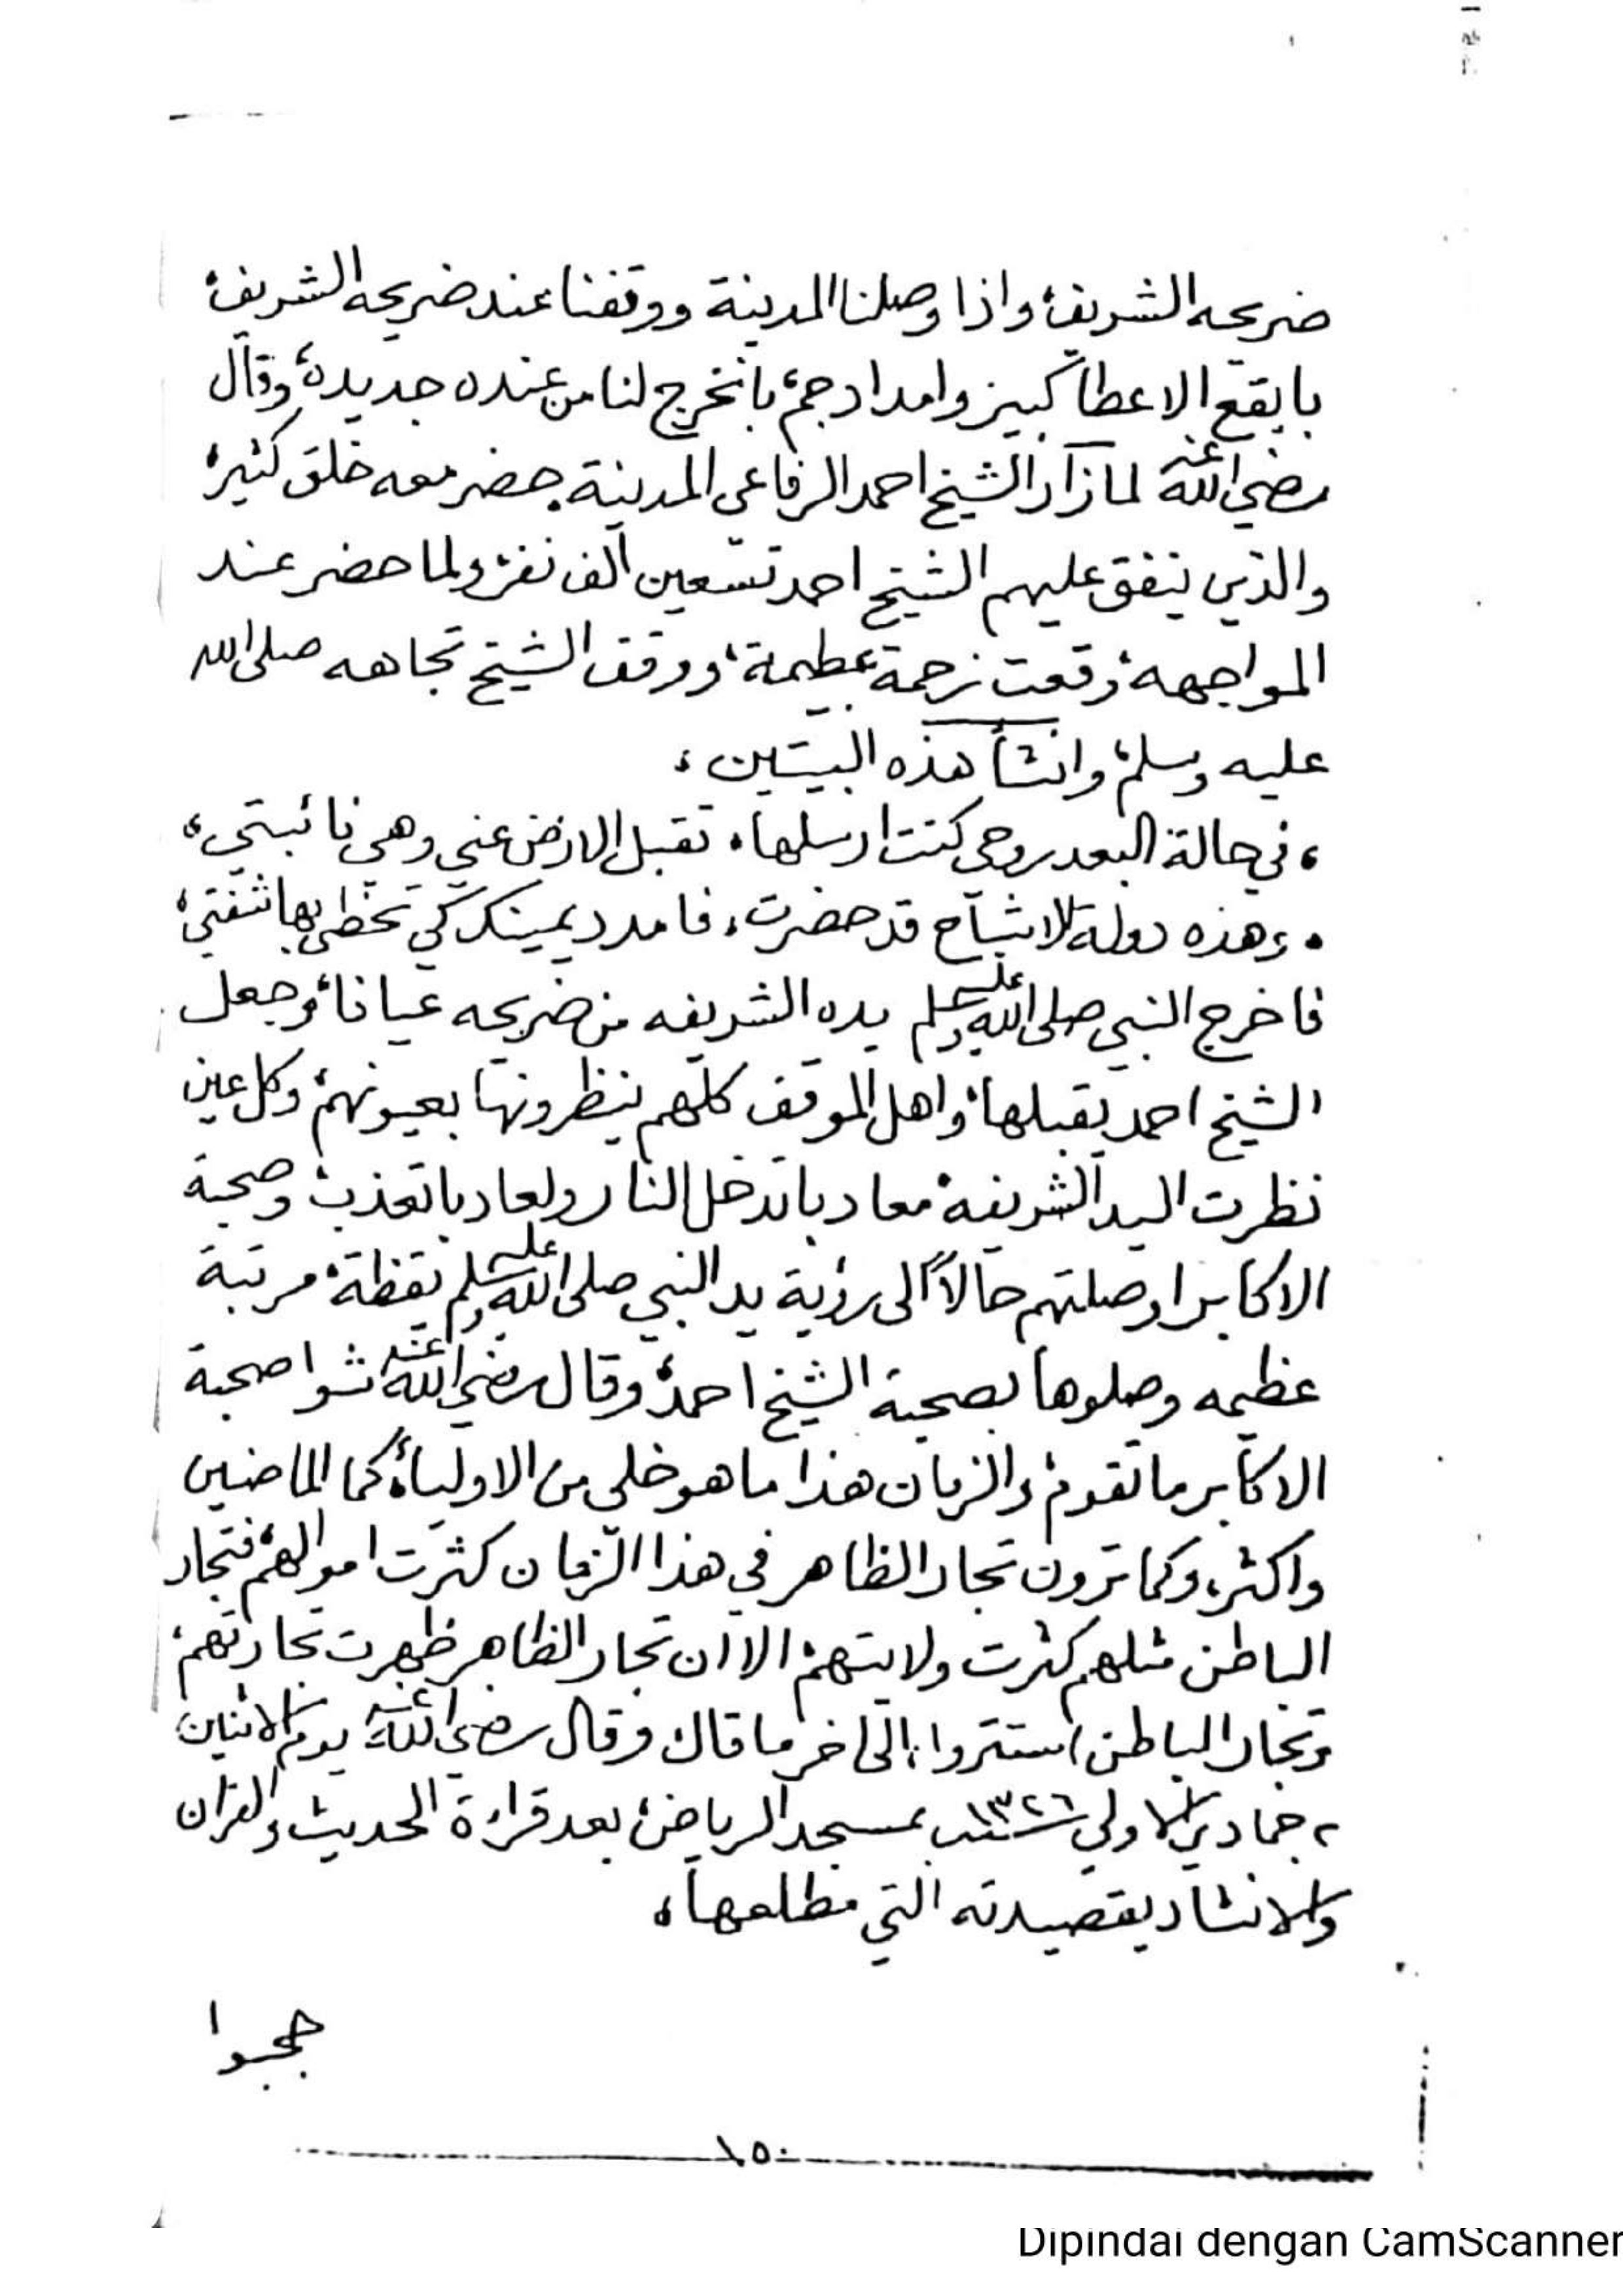 ضريحه الشريف، واذا وصلنا المدينة ووقفنا عند ضريحه الشريف،
با يقع الا عطا كبير وامداد جم، با تخرج لنا من عنده جديدة، وقال
رضي الله عنه لما زار الشيخ احمد الرفاعي المدينة حضر معه خلق كثير،
والذي ينفق عليهم الشيخ احمد تسعين الف نفر، ولما حضر عند
المواجهه، وقعت زحمة عظيمة، ووقف الشيخ تجاهه صلى الله
عليه وسلم، وانشأ هذه البيتين،
، في حالة البعد روحي كنت ارسلها، تقبل الارض عني وهي نائبتي،
، وهذه دولة الاشباح قد حضرت، فامدد يمينك كي تحظى بها شفتي،
فاخرج النبي صلى الله عليه وسلم يده الشريفه من ضريحه عيانا، وجعل
الشيخ احمد يقبلها، واهل الموقف كلهم ينظرونها بعيونهم، وكل عين
نظرت اليد الشريفة، معاد با تدخل النار ولعاد با تعذب، وصحبة
الاكابر اوصلتهم حالاً الى رؤية يد النبي صلى الله عليه وسلم يقظة، مرتبة
عظيمه وصلوها بصحبة الشيخ احمد، وقال رضي الله عنه شوا صحبة
الاكابر ما تقوم، والزمان هذا ما هو خلي من الاولياء، كما الماضين
واكثر، وكما ترون تجار الظاهر في هذا الزمان كثرت اموالهم، فتجار
الباطن مثلهم كثرت ولايتهم، الا ان تجار الظاهر ظهرت تجارتهم،
وتجار الباطن استتروا، الى اخر ما قال، وقال رضي الله عنه يوم الاثنين
٢ جمادى الاولى سنة ١٣٢٦ بمسجد الرياض، بعد قراءة الحديث والقران
والانشاد بقصيدته التي مطلعها،
حجبوا
١٥٠
Dipindai dengan CamScanner